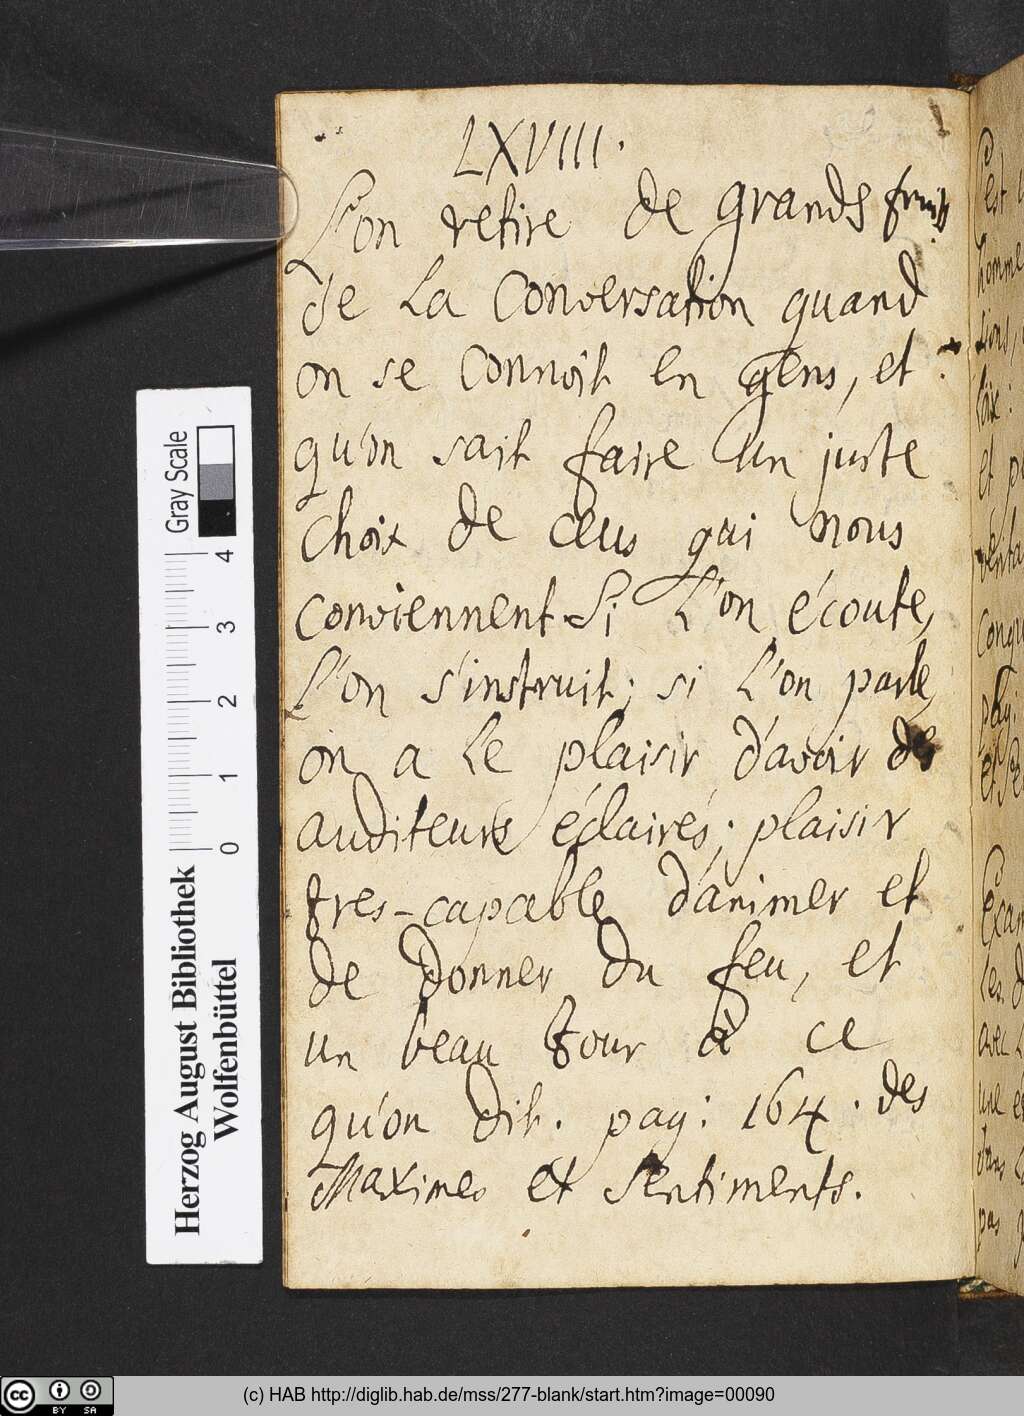 LXVIII.
L'on retire de grands fruits
de La Conversation quand
on se connoît en gens, et
qu'on sait faire un juste
choix de ceus qui nous
conviennent. Si L'on écoute,
L'on s'instruit; si L'on parle,
on a Le plaisir d'avoir des
auditeurs éclairés; plaisir
tres-capable d'animer et
de donner du feu, et
un beau tour à ce
qu'on dit. pag: 164. des
Maximes et Sentiments.
C'est
homme
et
Herzog August Bibliothek
Wolfenbüttel
Gray Scale
0 1 2 3 4
cc BY SA
(c) HAB http://diglib.hab.de/mss/277-blank/start.htm?image=00090